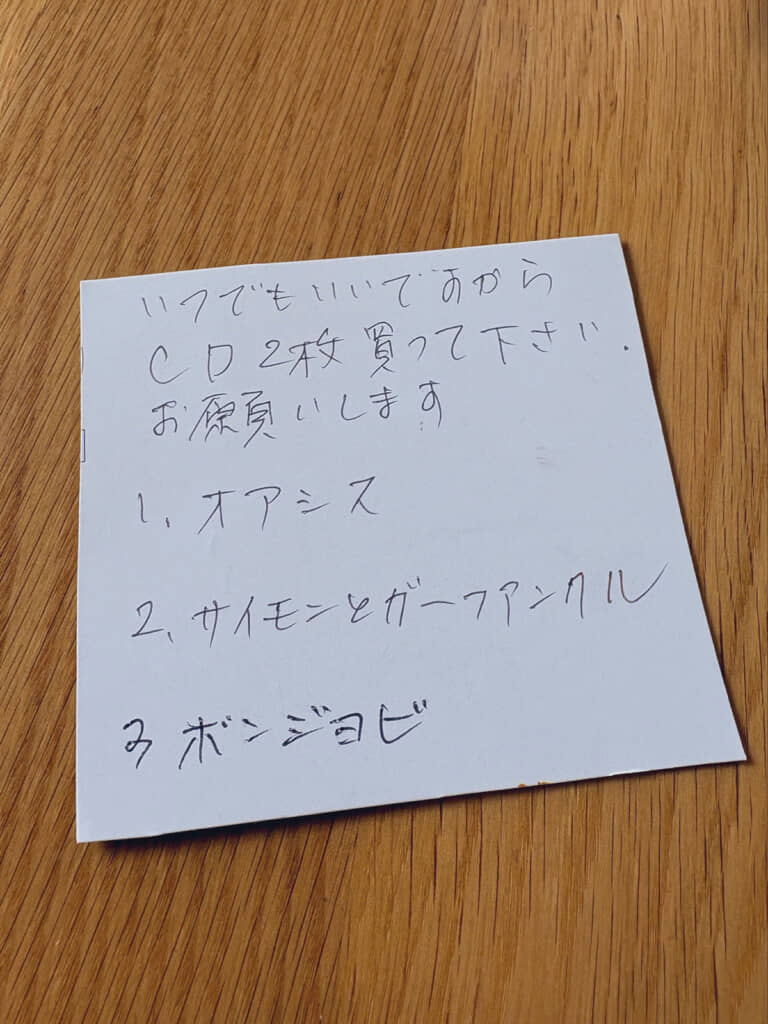 いつでもいいですから
CD2枚買って下さい.
お願いします
1、オアシス
2、サイモンとガーファンクル
3 ボンジョビ